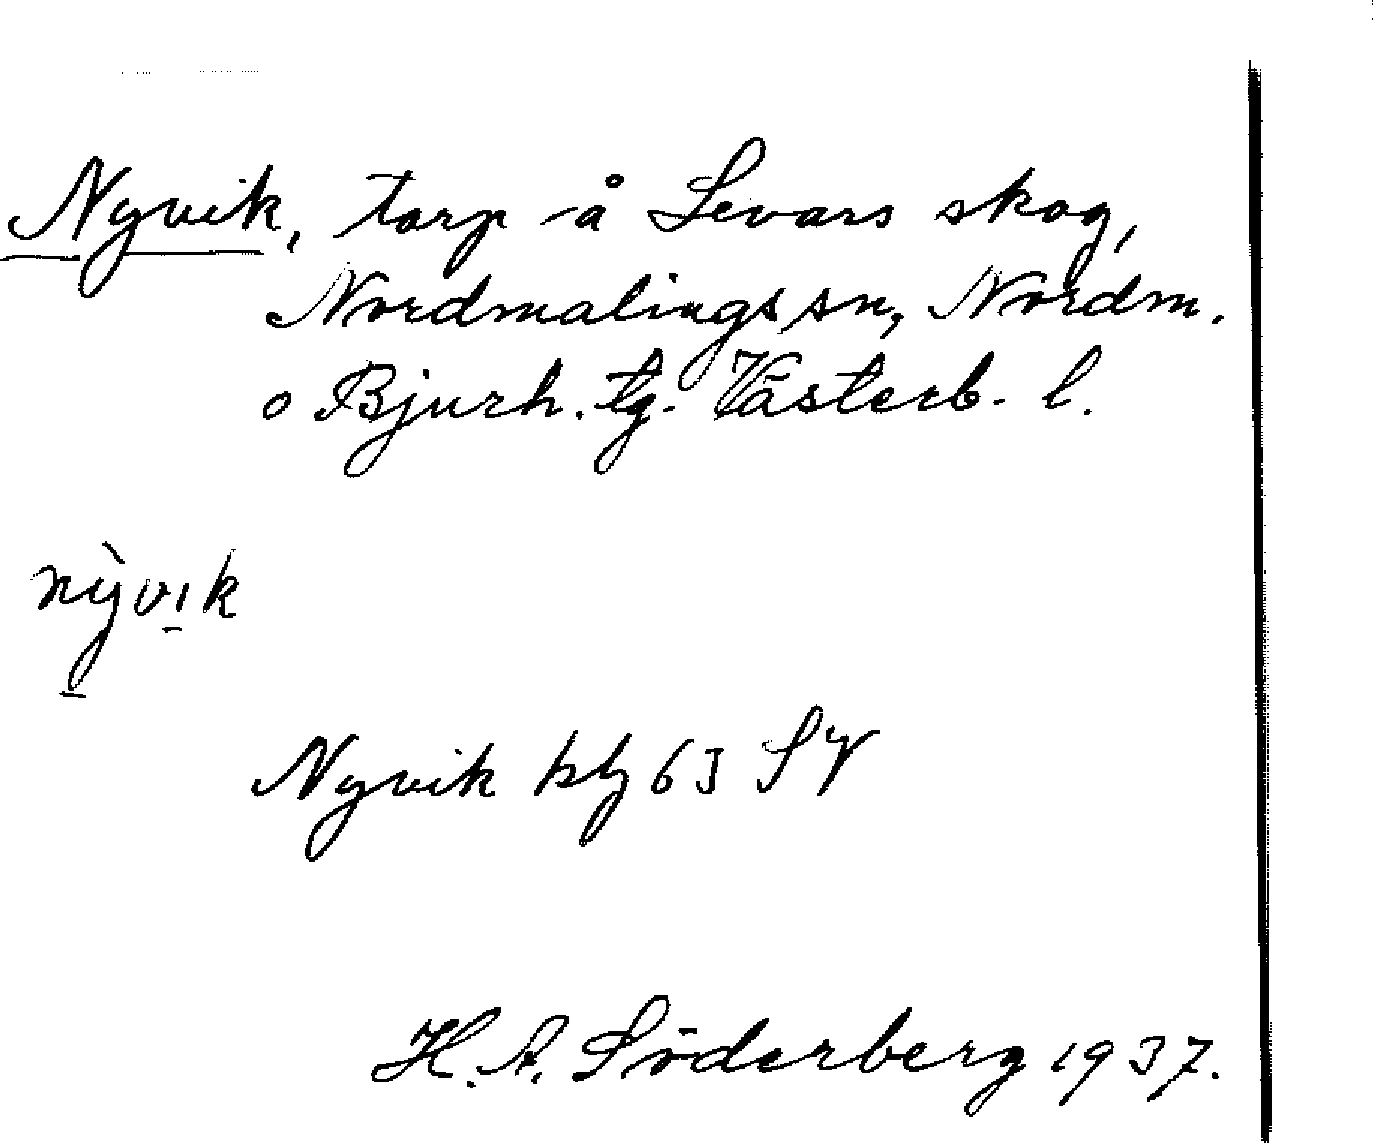 Nyvik, torp å Levars skog,
Nordmalings sn, Nordm.
o Bjurh. tg. Västerb. l.
nỳvik
Nyvik kbl 63 SV
H. A. Söderberg 1937.